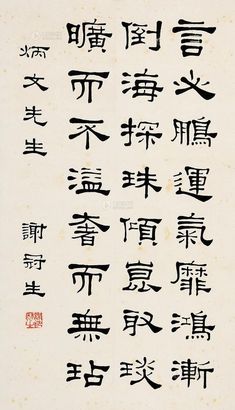 言必鵬運氣靡鴻漸
倒海探珠傾崑取琰
曠而不溢奢而無玷
炳文先生 謝冠生